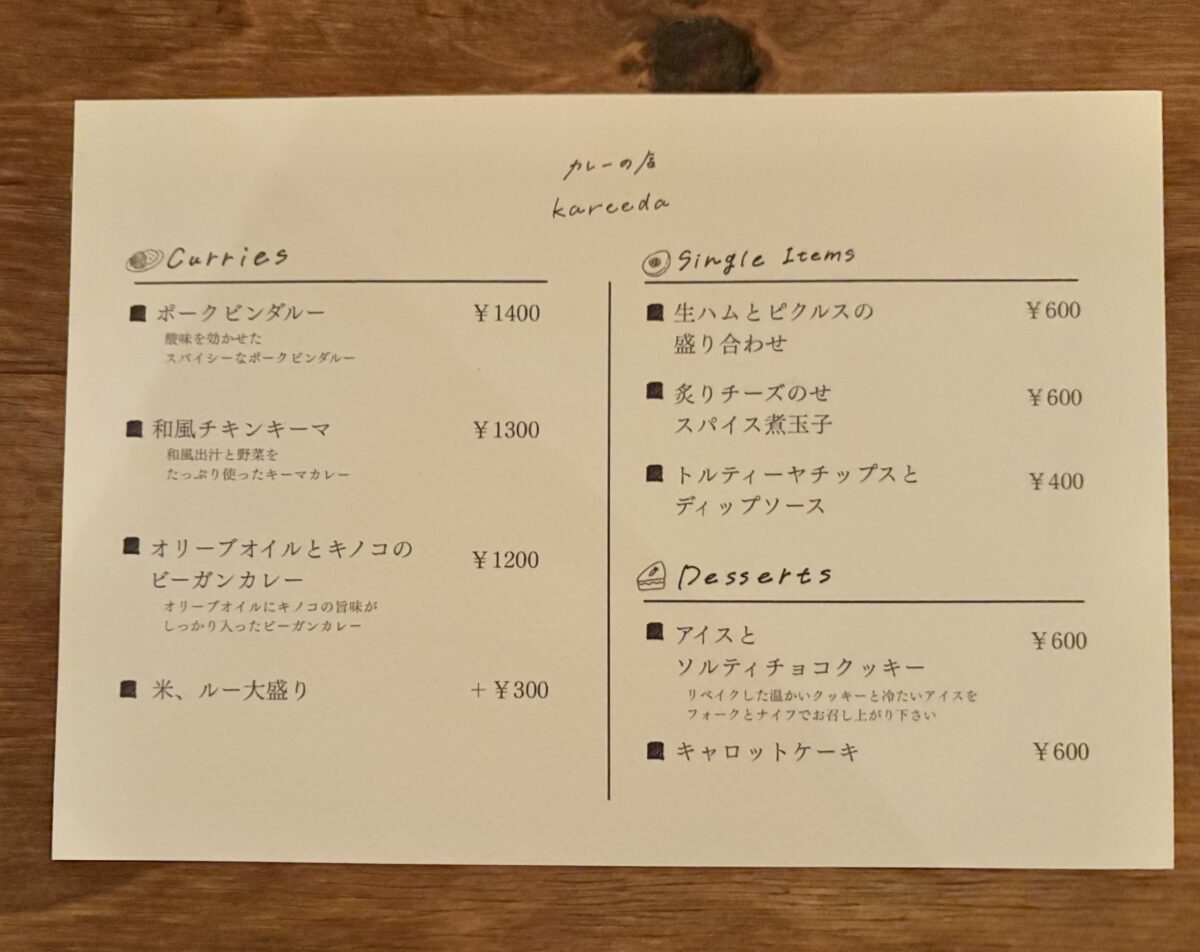 カレーの店
kareeda
Curries
ポークビンダルー ￥1400
酸味を効かせた
スパイシーなポークビンダルー
和風チキンキーマ ￥1300
和風出汁と野菜を
たっぷり使ったキーマカレー
オリーブオイルとキノコの
ビーガンカレー ￥1200
オリーブオイルにキノコの旨味が
しっかり入ったビーガンカレー
米、ルー大盛り ＋￥300
Single Items
生ハムとピクルスの ￥600
盛り合わせ
炙りチーズのせ ￥600
スパイス煮玉子
トルティーヤチップスと ￥400
ディップソース
Desserts
アイスと ￥600
ソルティチョコクッキー
リベイクした温かいクッキーと冷たいアイスを
フォークとナイフでお召し上がり下さい
キャロットケーキ ￥600